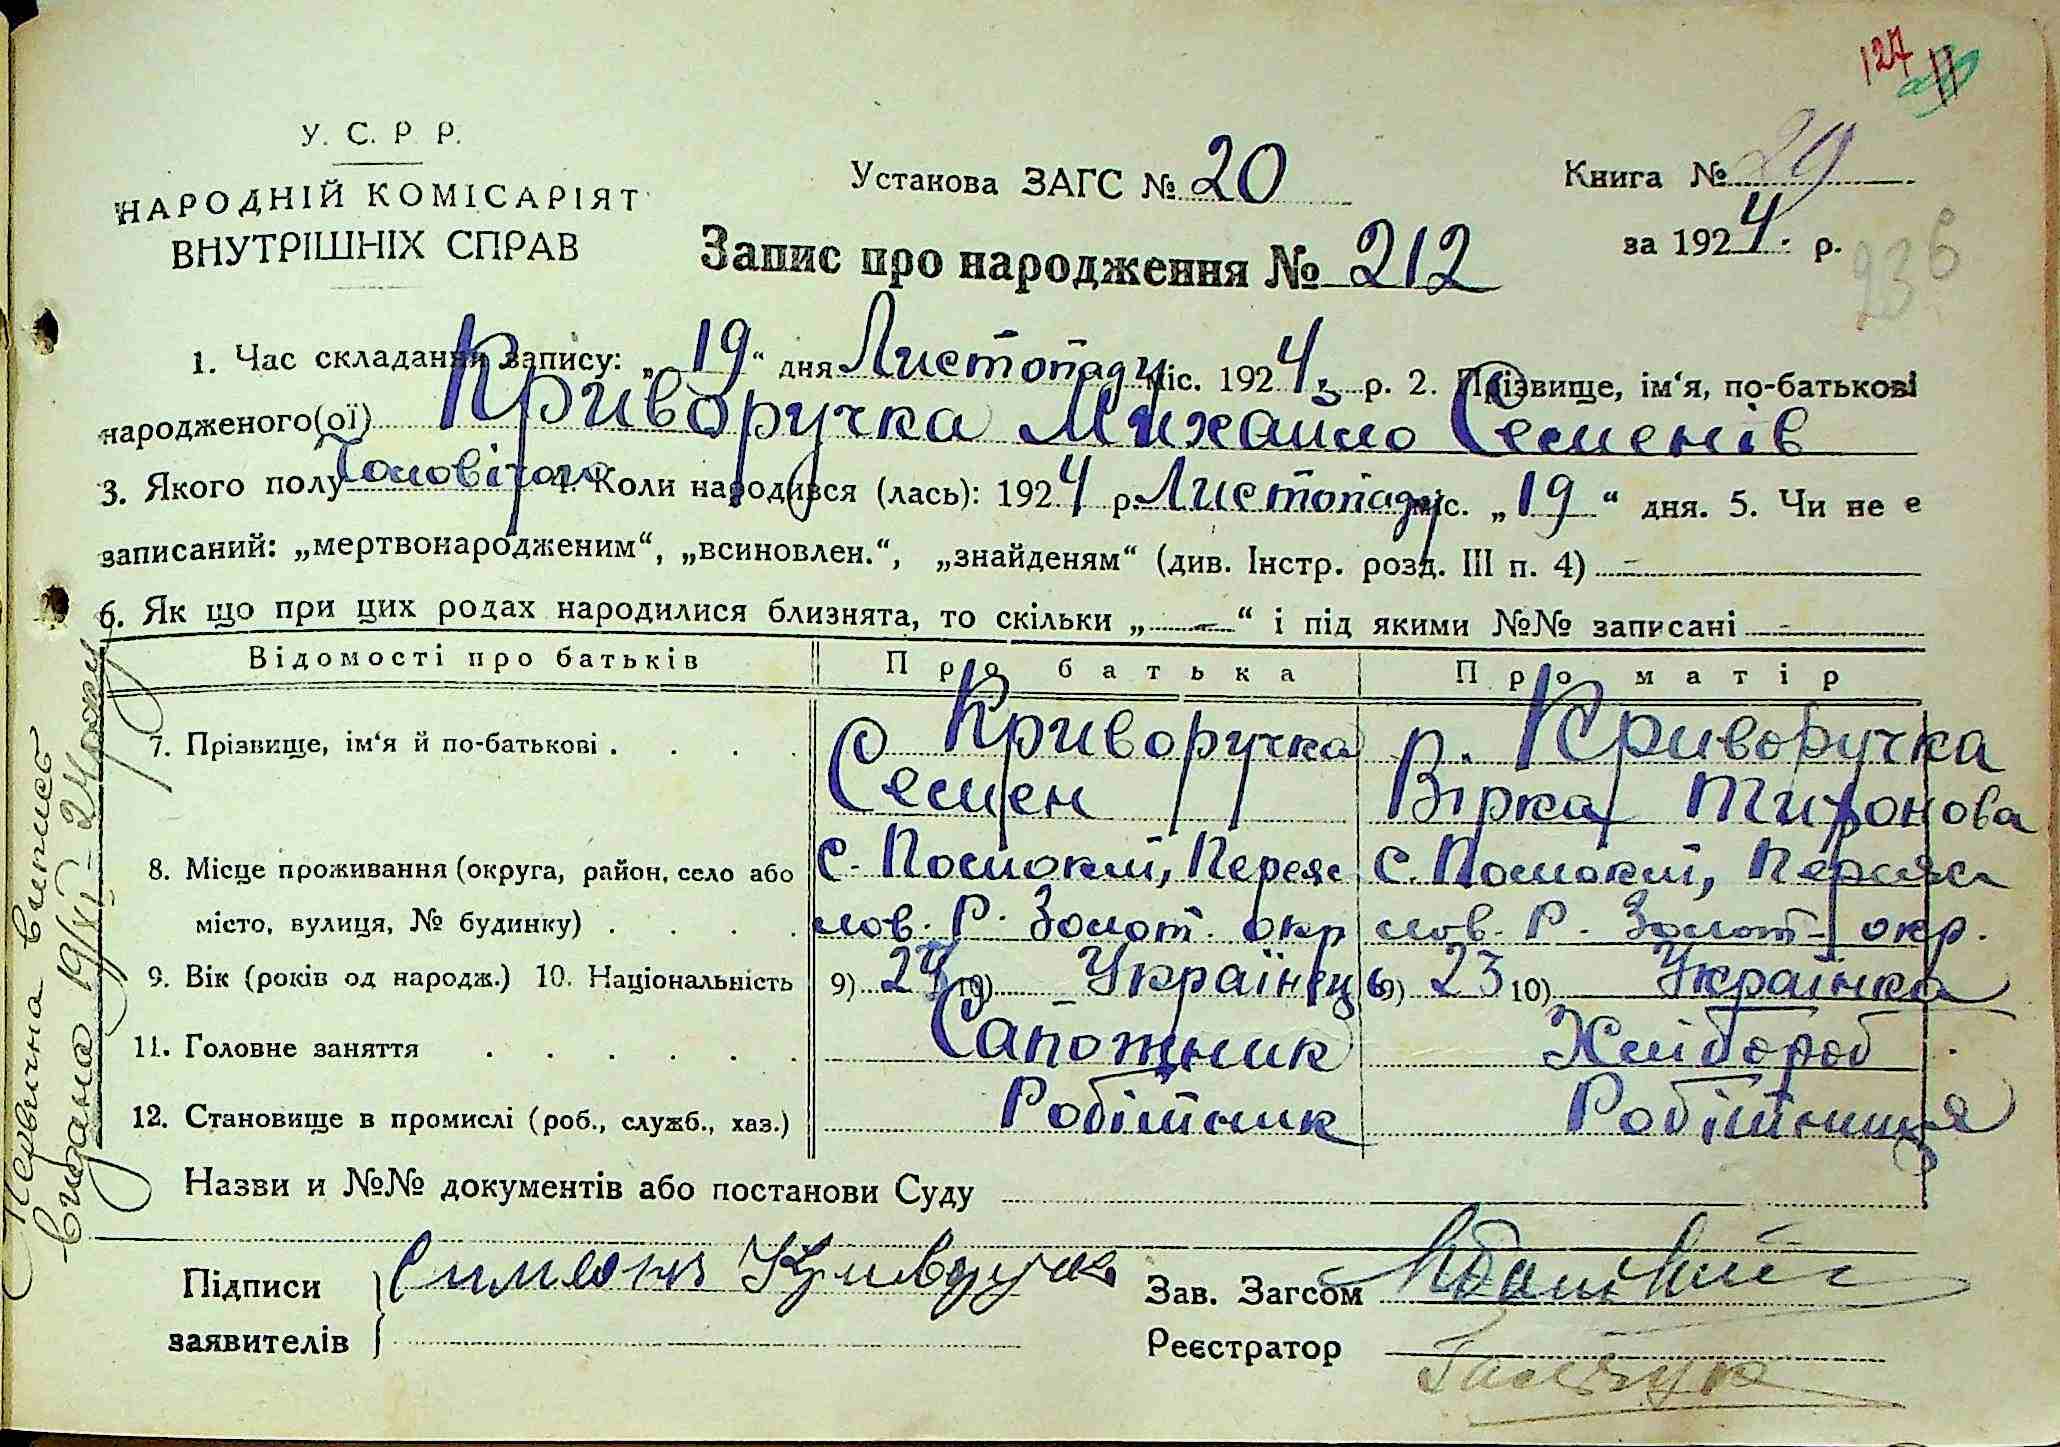 127
У. С. Р Р.
НАРОДНІЙ КОМІСАРІЯТ
ВНУТРІШНІХ СПРАВ
Установа ЗАГС № 20
Книга № 29
за 1924 р.
236
Запис про народження № 212
1. Час складання запису: „19“ дня Листопаду міс. 1924 р. 2. Прізвище, ім‘я, по-батькові
народженого(ої) Криворучка Михайло Семенів
3. Якого полу Чоловічого 4. Коли народився (лась): 1924 р. Листопаду міс. „19“ дня. 5. Чи не є
записаний: „мертвонародженим“, „всиновлен.“, „знайденям“ (див. Інстр. розд. III п. 4) —
6. Як що при цих родах народилися близнята, то скільки „—“ і під якими №№ записані —
Відомості про батьків Про батька Про матір
7. Прізвище, ім‘я й по-батькові . . . . Криворучка Криворучка
Семен Вірка Тихонова
8. Місце проживання (округа, район, село або с. Помоклі, Переяс с. Помоклі, Переяс
місто, вулиця, № будинку) . . . . лов. Р. Золот. окр лов. Р. Золот. окр.
9. Вік (років од народж.) 10. Національність 9) 24 10) Українець 9) 23 10) Українка
11. Головне заняття . . . . . . Сапожник Хлібороб
12. Становище в промислі (роб., служб., хаз.) Робітник Робітниця
Назви и №№ документів або постанови Суду
Підписи
заявителів
Симеон Криворучка
Зав. Загсом
Реєстратор
Первична випись
видана 19/XI - 24 року